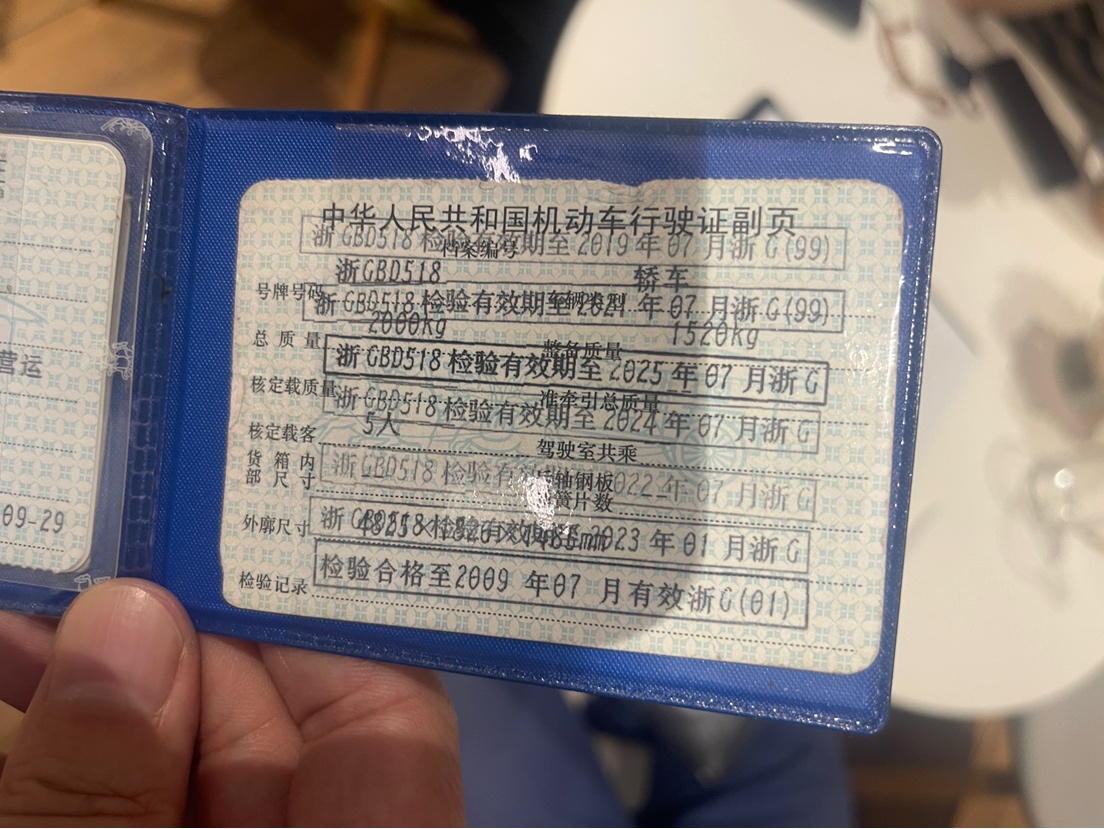 营运
09-29
中华人民共和国机动车行驶证副页
浙GBD518 检验有效期至 2019 年 07 月浙G(99)
档案编号
浙GBD518 轿车
号牌号码 车辆类型
浙GBD518 检验有效期至 2021 年 07 月浙G(99)
2000Kg 1520Kg
总质量 整备质量
浙GBD518 检验有效期至 2025 年 07 月浙G
核定载质量 准牵引总质量
浙GBD518 检验有效期至 2024 年 07 月浙G
核定载客 5人 驾驶室共乘
货箱内部尺寸 后轴钢板簧片数
浙GBD518 检验有效 022 年 07 月浙G
外廓尺寸
浙 检验有效 023 年 01 月浙G
检验记录
检验合格至2009 年07 月有效浙G(01)